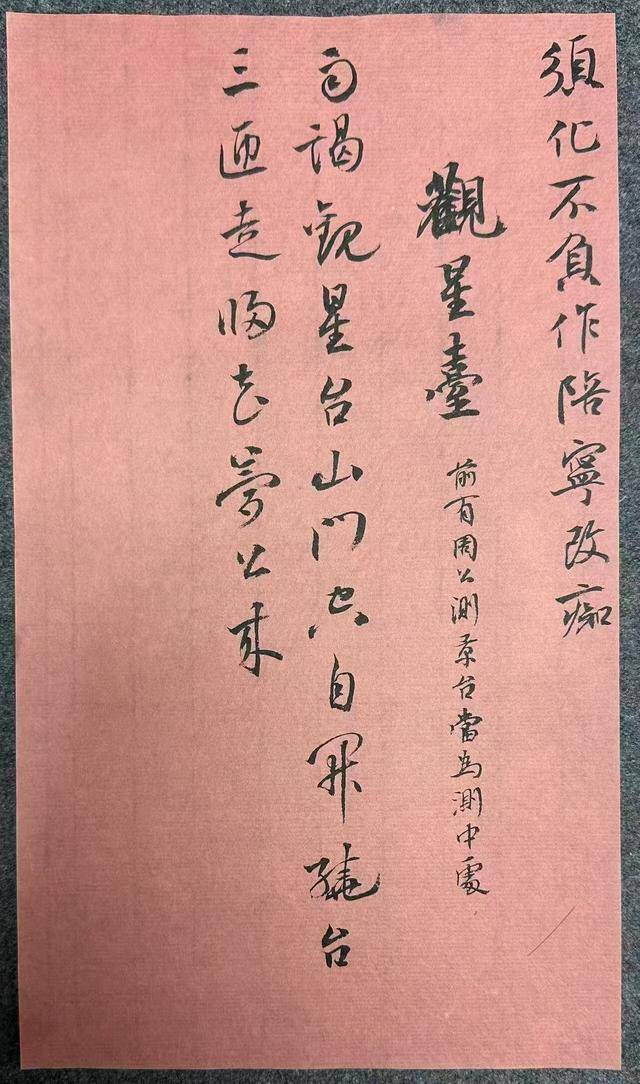 須化不負作陪寧改痴
觀星臺 前有周公測景台當為測中處
謁觀星台山門空自開繞台
三匝走歸去夢公來